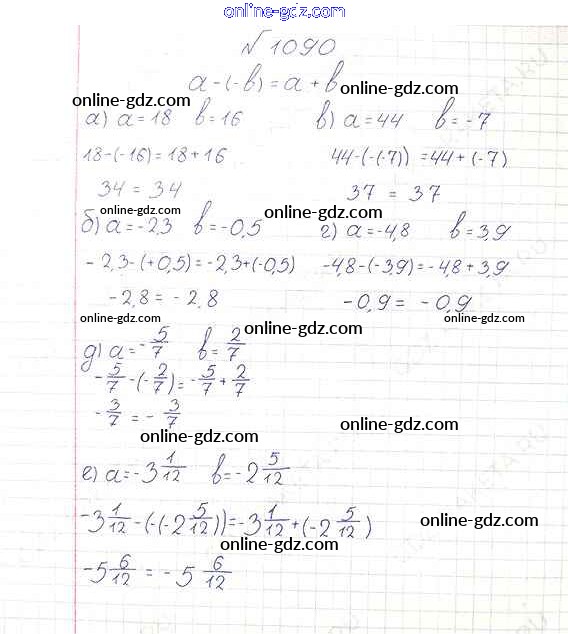 online-gdz.com
№1090
a-(-b)=a+b
online-gdz.com online-gdz.com
а) a=18 b=16 в) a=44 b=-7
18-(-16)=18+16 44-(-(-7))=44+(-7)
34=34 37=37
online-gdz.com online-gdz.com
б) a=-2,3 b=-0,5 г) a=-4,8 b=3,9
-2,3-(+0,5)=-2,3+(-0,5) -4,8-(-3,9)=-4,8+3,9
-2,8=-2,8 -0,9=-0,9
online-gdz.com online-gdz.com online-gdz.com
д) a=-5/7 b=2/7
-5/7-(-2/7)=-5/7+2/7
-3/7=-3/7
online-gdz.com
online-gdz.com
е) a=-3 1/12 b=-2 5/12
-3 1/12-(-(-2 5/12))=-3 1/12+(-2 5/12)
online-gdz.com
online-gdz.com
-5 6/12=-5 6/12